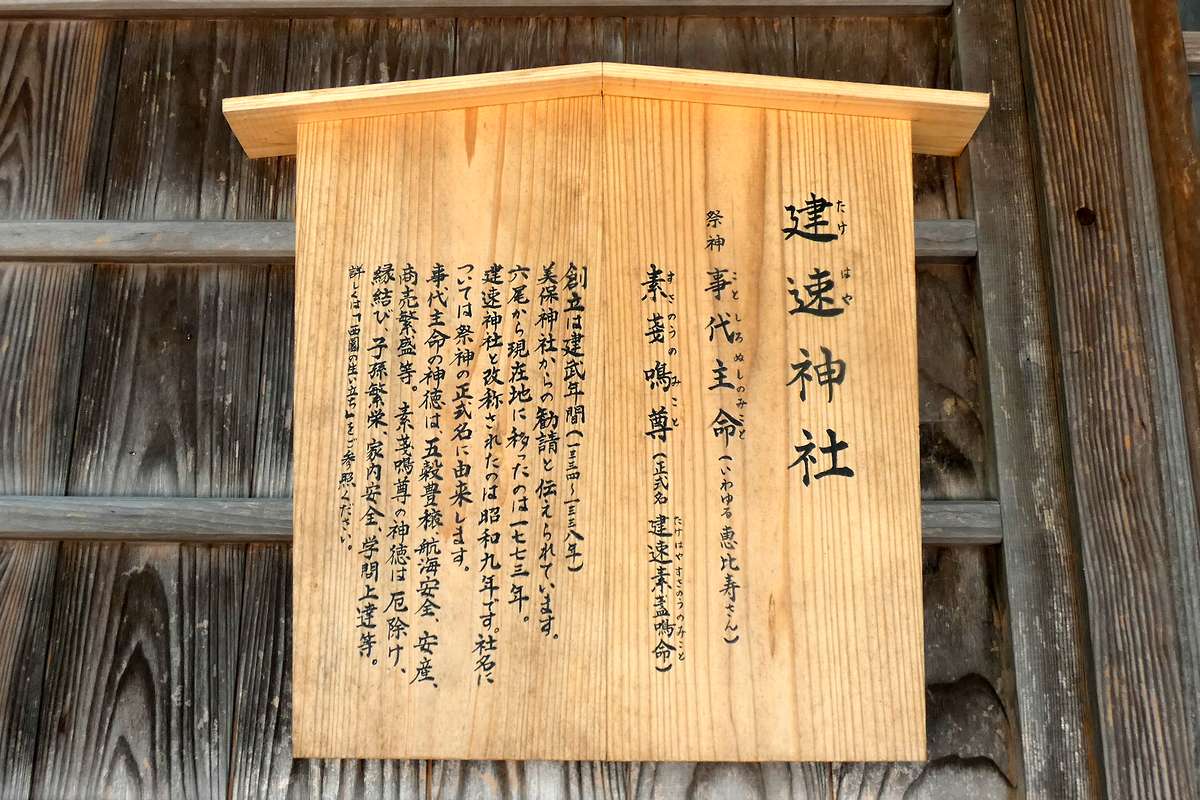 建速神社
たけはや
祭神 事代主命(いわゆる恵比寿さん)
ことしろぬしのみこと
素戔嗚尊(正式名 建速素盞嗚命)
すさのうのみこと
たけはやすさのうのみこと
創立は建武年間(一三三四~一三三八年)
美保神社からの勧請と伝えられています。
六尾から現在地に移ったのは一七七三年。
建速神社と改称されたのは昭和九年です。社名に
ついては祭神の正式名に由来します。
事代主命の神徳は、五穀豊穣、航海安全、安産、
商売繁盛等。素戔嗚尊の神徳は厄除け、
縁結び、子孫繁栄、家内安全、学問上達等。
詳しくは「西園の生い立ち」をご参照ください。